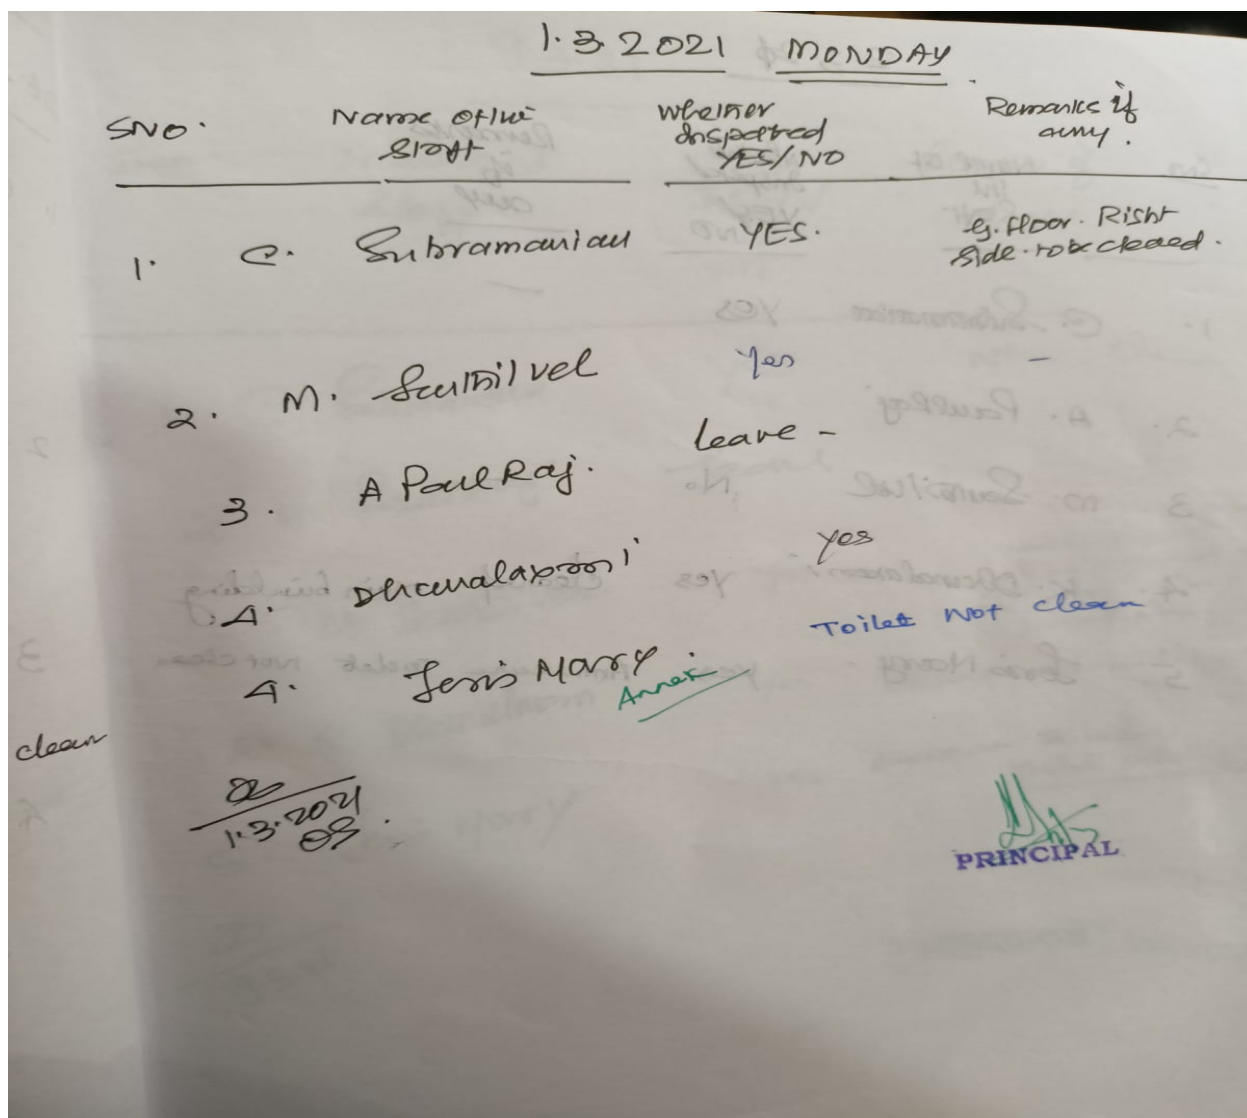 1.3.2021 MONDAY
SNO. Name of the Staff Whether Inspected YES/NO Remarks if any.
1. C. Subramanian YES. G. Floor. Right Side. to be cleaned.
2. M. Senthilvel Yes -
3. A Paul Raj. Leave -
4. Dhanalaxmi yes
Toilet Not clean
4. Jenis Mary.
Annex
clean
1.3.2021
OS.
PRINCIPAL